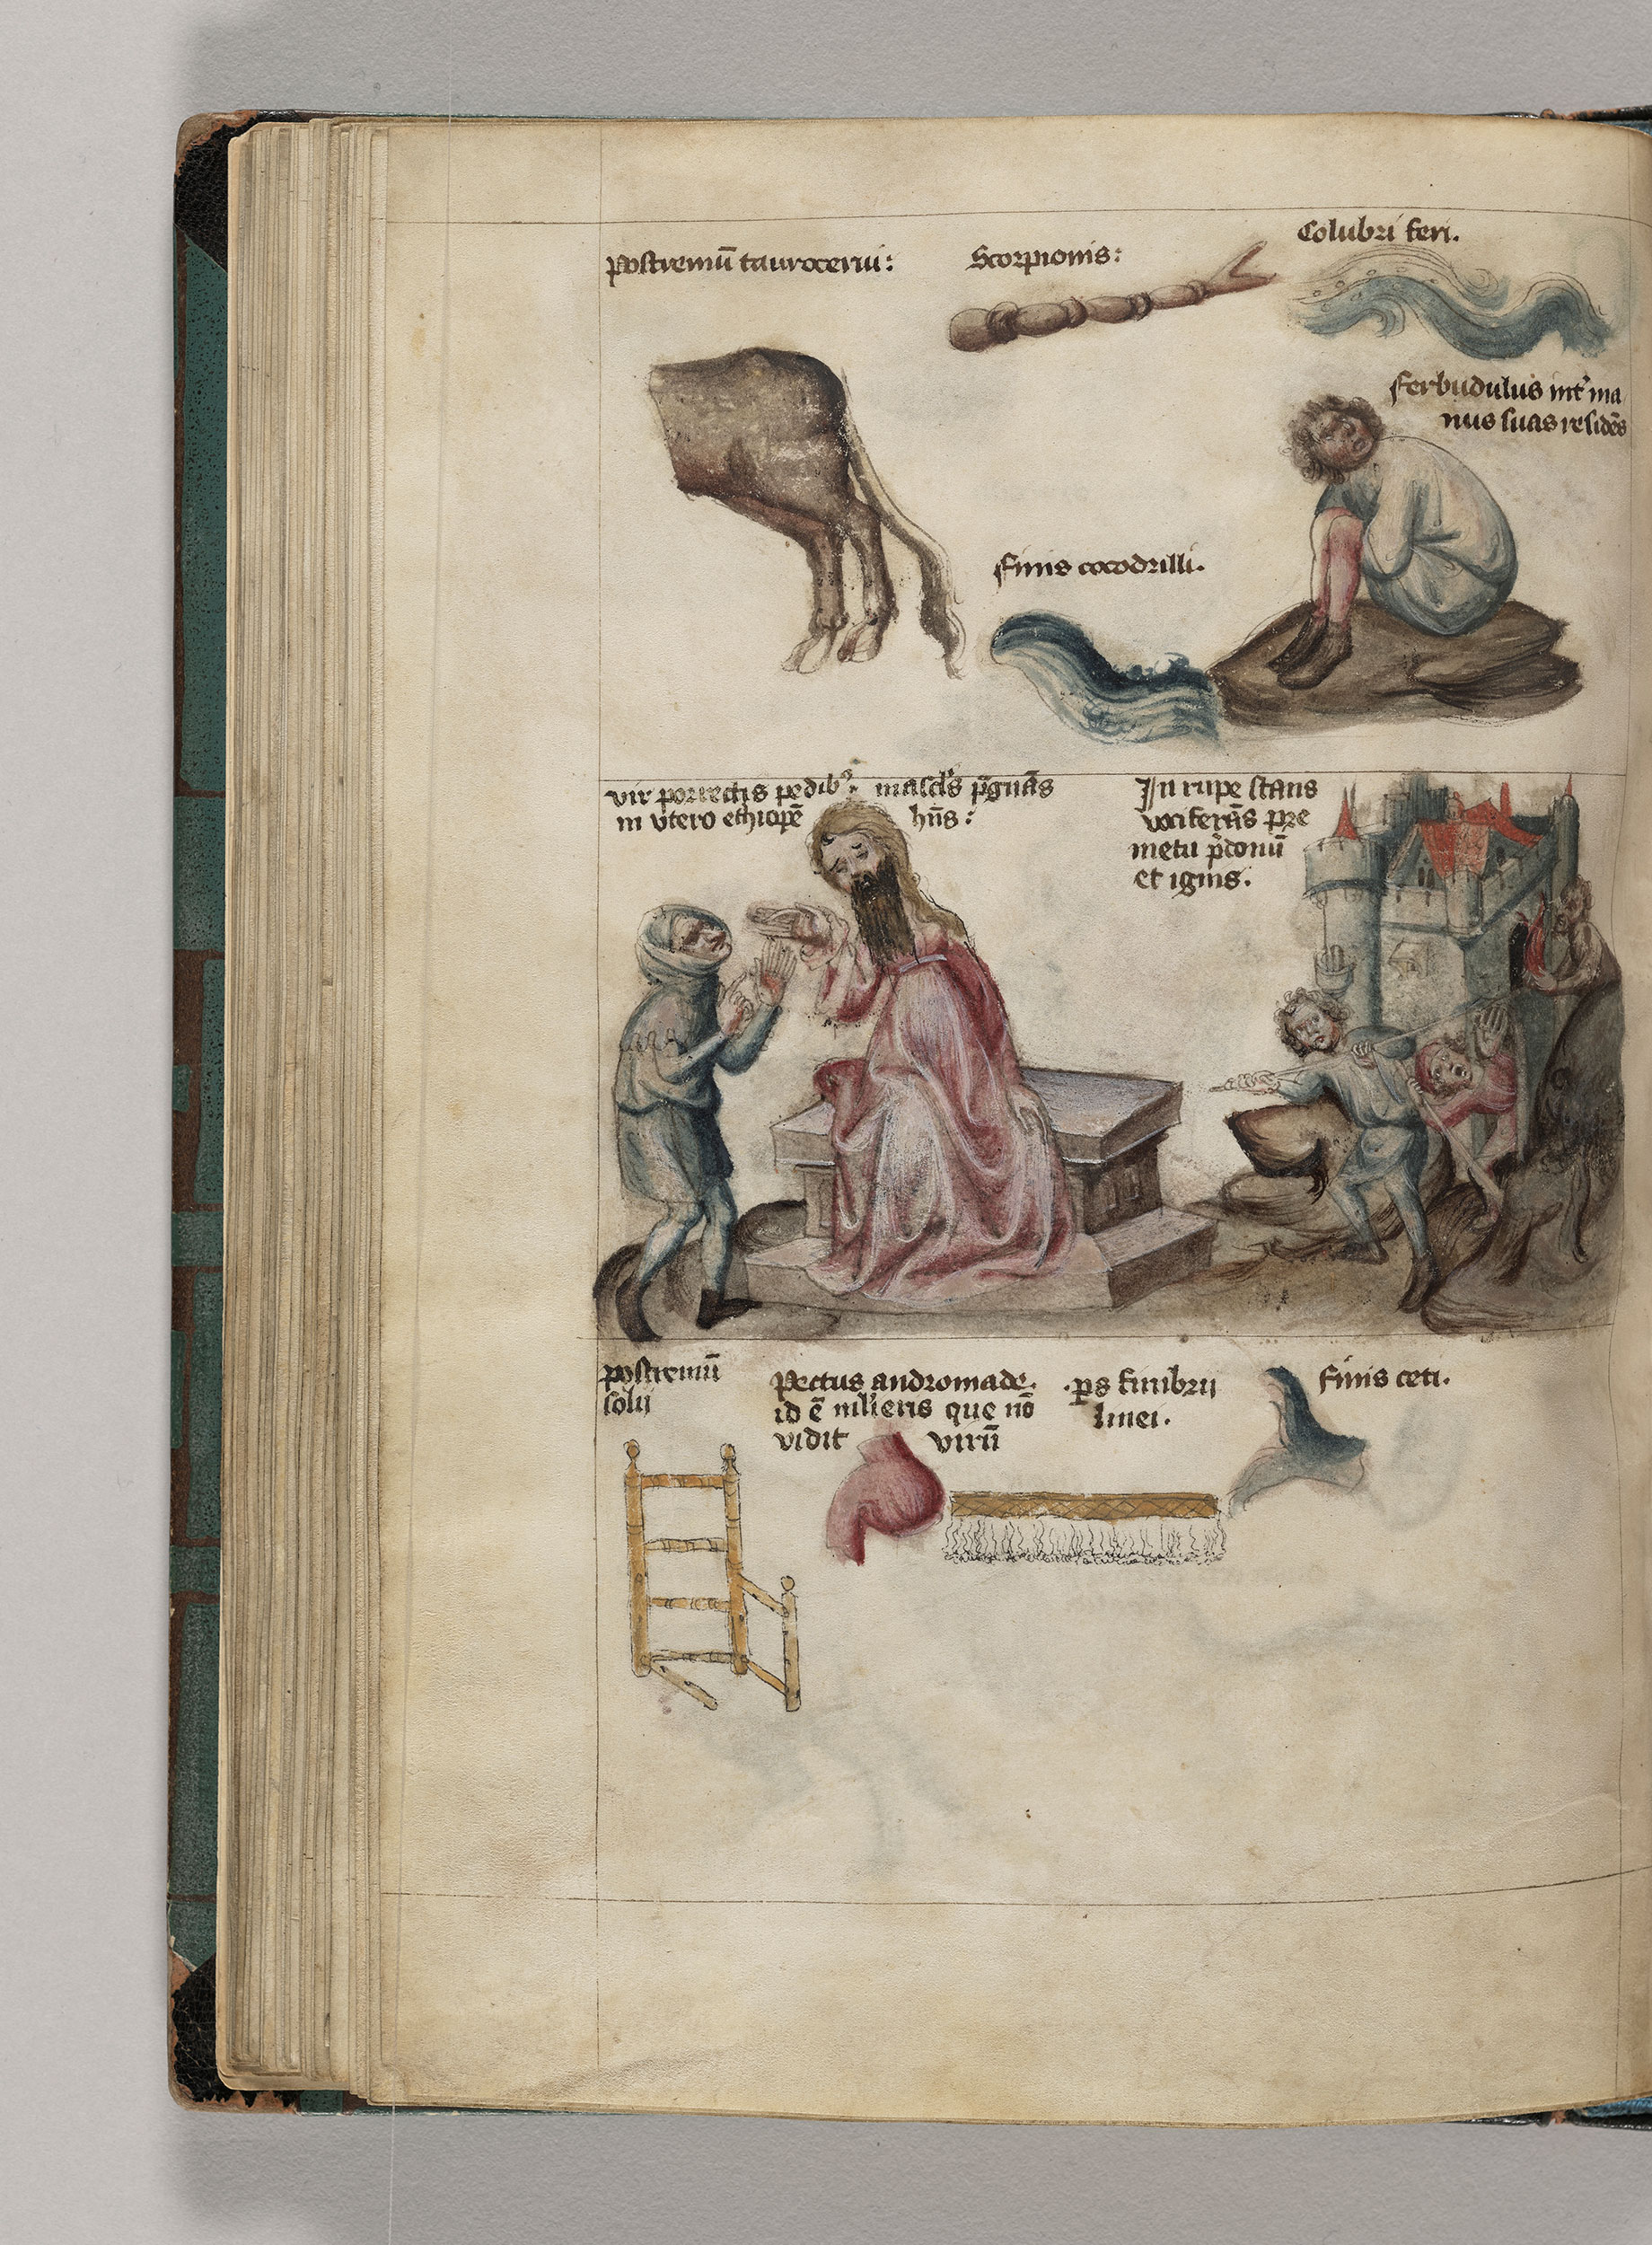 postremū taurocerui:
Scorpionis:
Colubri feri.
ferbudulus int' ma
nus suas residēs
finis cocodrilli.
vir porrectis pedib9.
in vtero ethiopē
mascl's p̄gnās
hn̄s:
In rupe stans
vociferās pre
metu p̄donū
et ignis.
postremū
solij
Pectus andromade.
id ē mlieris que nō
vidit virū
.ps fimbrii
linei.
finis ceti.